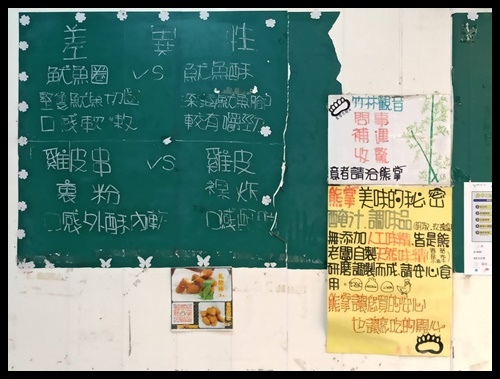 差異性
魷魚圈 VS 魷魚酥
整隻魷魚切圈
口感軟
較有嚼勁
雞皮串 VS 雞皮
裹粉
裸炸
口感外酥內軟
口感
竹林觀音
問事
補運
收驚
意者請洽熊掌
熊掌美味的秘密
醃汁.調味品
無添加人工味精.皆是熊
老闆自製天然味精
研磨調製而成.請安心食
用.
熊掌讓您買的安心
也讓您吃的開心